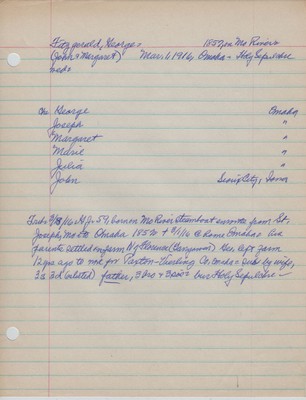 Fitzgerald, George = 1852, on Mo River =
(John & Margaret) Mar. 6 1916, Omaha = Holy Sepulchre
Ch George Omaha
Joseph "
Margaret "
Marie "
Julia "
John Sioux City, Iowa
born on Mo River Steamboat enroute from St.
Joseph, Mo to Omaha 1852 + Omaha =
parents settled on farm N/ Florence left farm
12 yrs ago to work for Paxton- Co. Omaha = Surv by wife,
3s 3d (as listed) father, 3 bro + 3 sis = bur Holy Sepulchre